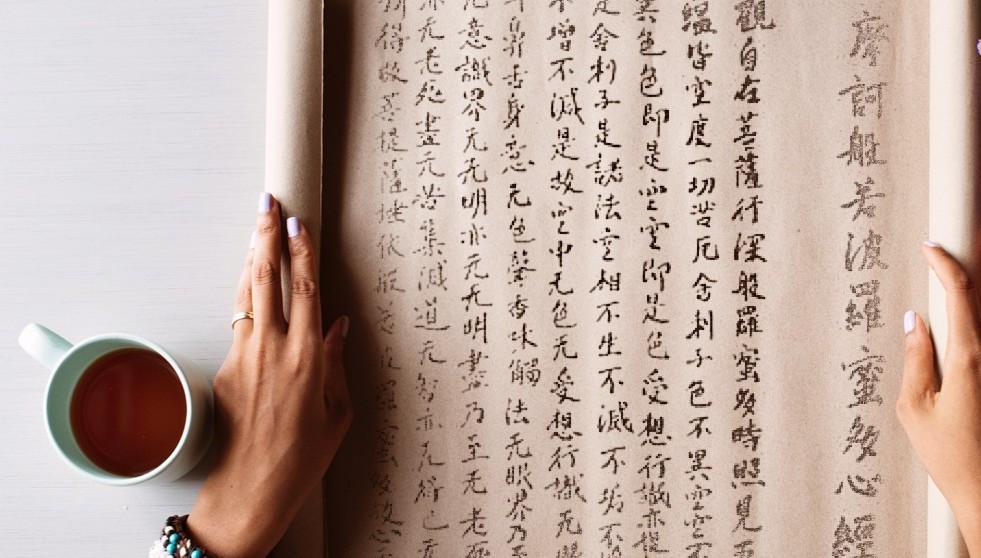 摩訶般若波羅蜜多心經
觀自在菩薩行深般羅蜜多時照見五
蘊皆空度一切苦厄舍利子色不異空空
異色色即是空空即是色受想行識亦復
是舍利子是諸法空相不生不滅不垢不
不增不減是故空中无色无受想行識无
耳鼻舌身意无色聲香味觸法无眼界乃
无意識界无无明亦无无明盡乃至无老死
亦无老死盡无苦集滅道无智亦无得已无
所得故菩提薩埵依般若波羅蜜多故心